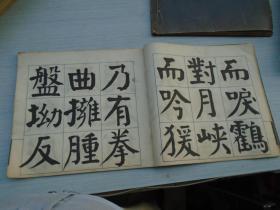 而唳鶴
對月峽
而吟猨
乃有拳
曲擁腫
盤坳反